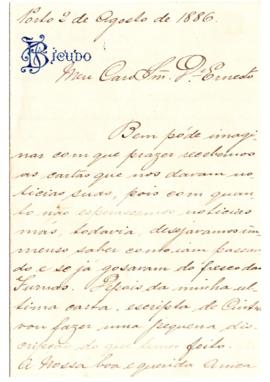 Porto 2 de Agosto de 1886.
BICUDO
Meu Caro Snr. Dr. Ernesto
Bem póde imagi-
nar com que prazer recebemos
as cartas que nos davam no-
ticias suas, pois com quan-
to não esperassemos noticias
más, todavia, desejavamos im-
menso saber como iam passan-
do e se já gosaram do fresco das
Furnas. Depois da minha ul-
tima carta, escripta de Cintra
vou fazer uma pequena dis-
cripção do que temos feito.
A Nossa boa e querida Amiga